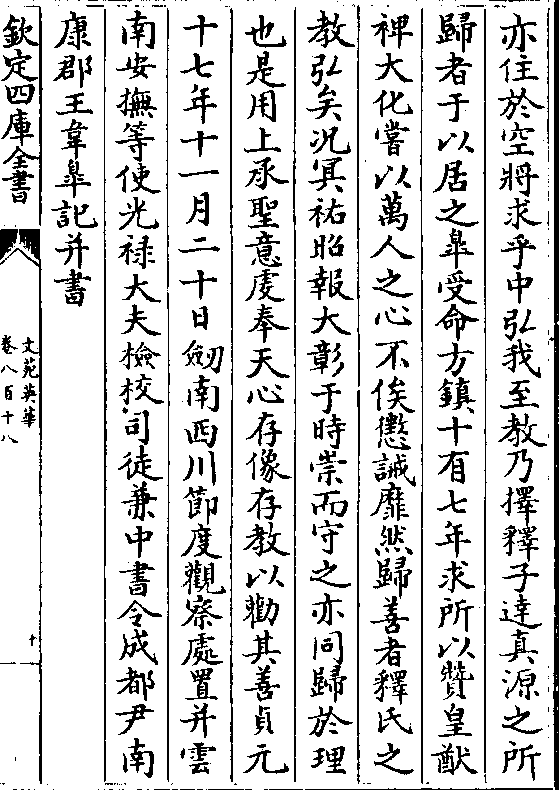 亦住於空將求乎中弘我至教乃擇釋子達真源之所
歸者于以居之臯受命方鎮十有七年求所以贊皇猷
裨大化嘗以萬人之心不俟懲誡靡然歸善者釋氏之
教弘矣况冥祐昭報大彰于時崇而守之亦同歸於理
也是用上承聖意虔奉天心存像存教以勸其善貞元
十七年十一月二十日劔南西川節度觀察處置并雲
南安撫等使光禄大夫檢校司徒兼中書令成都尹南
康郡王韋臯記并書
欽定四庫全書
文苑英華
卷八百十八
十